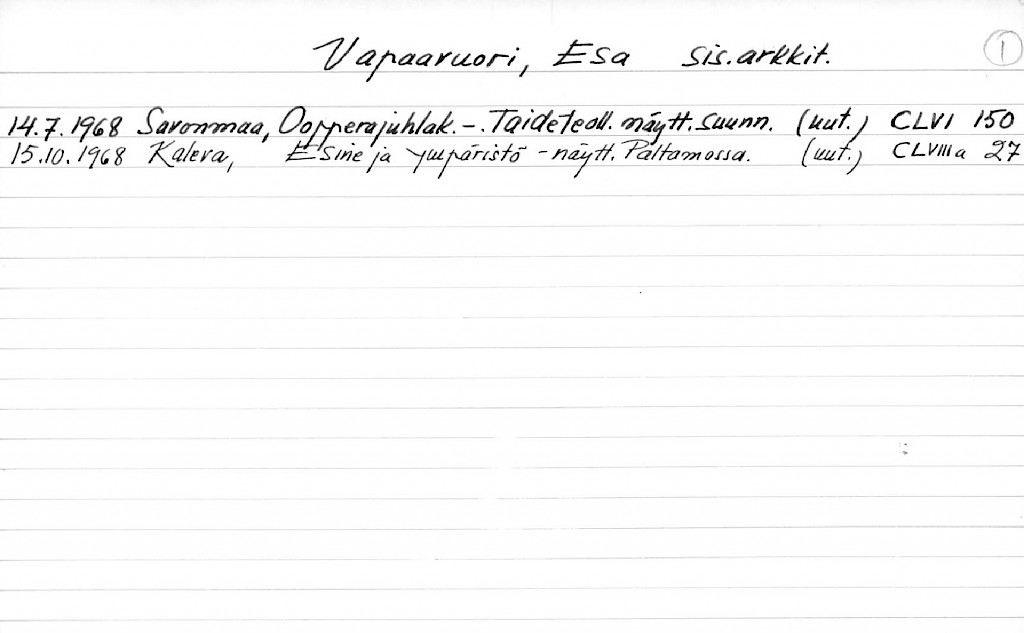 Vapaavuori, Esa sis.arkkit. 1
14.7.1968 Savonmaa, Oopperajuhlak. -. Taideteoll. näytt. suunn. (uut.) CLVI 150
15.10.1968 Kaleva, Esine ja ympäristö -näytt. Paltamossa. (uut.) CLVIIIa 27